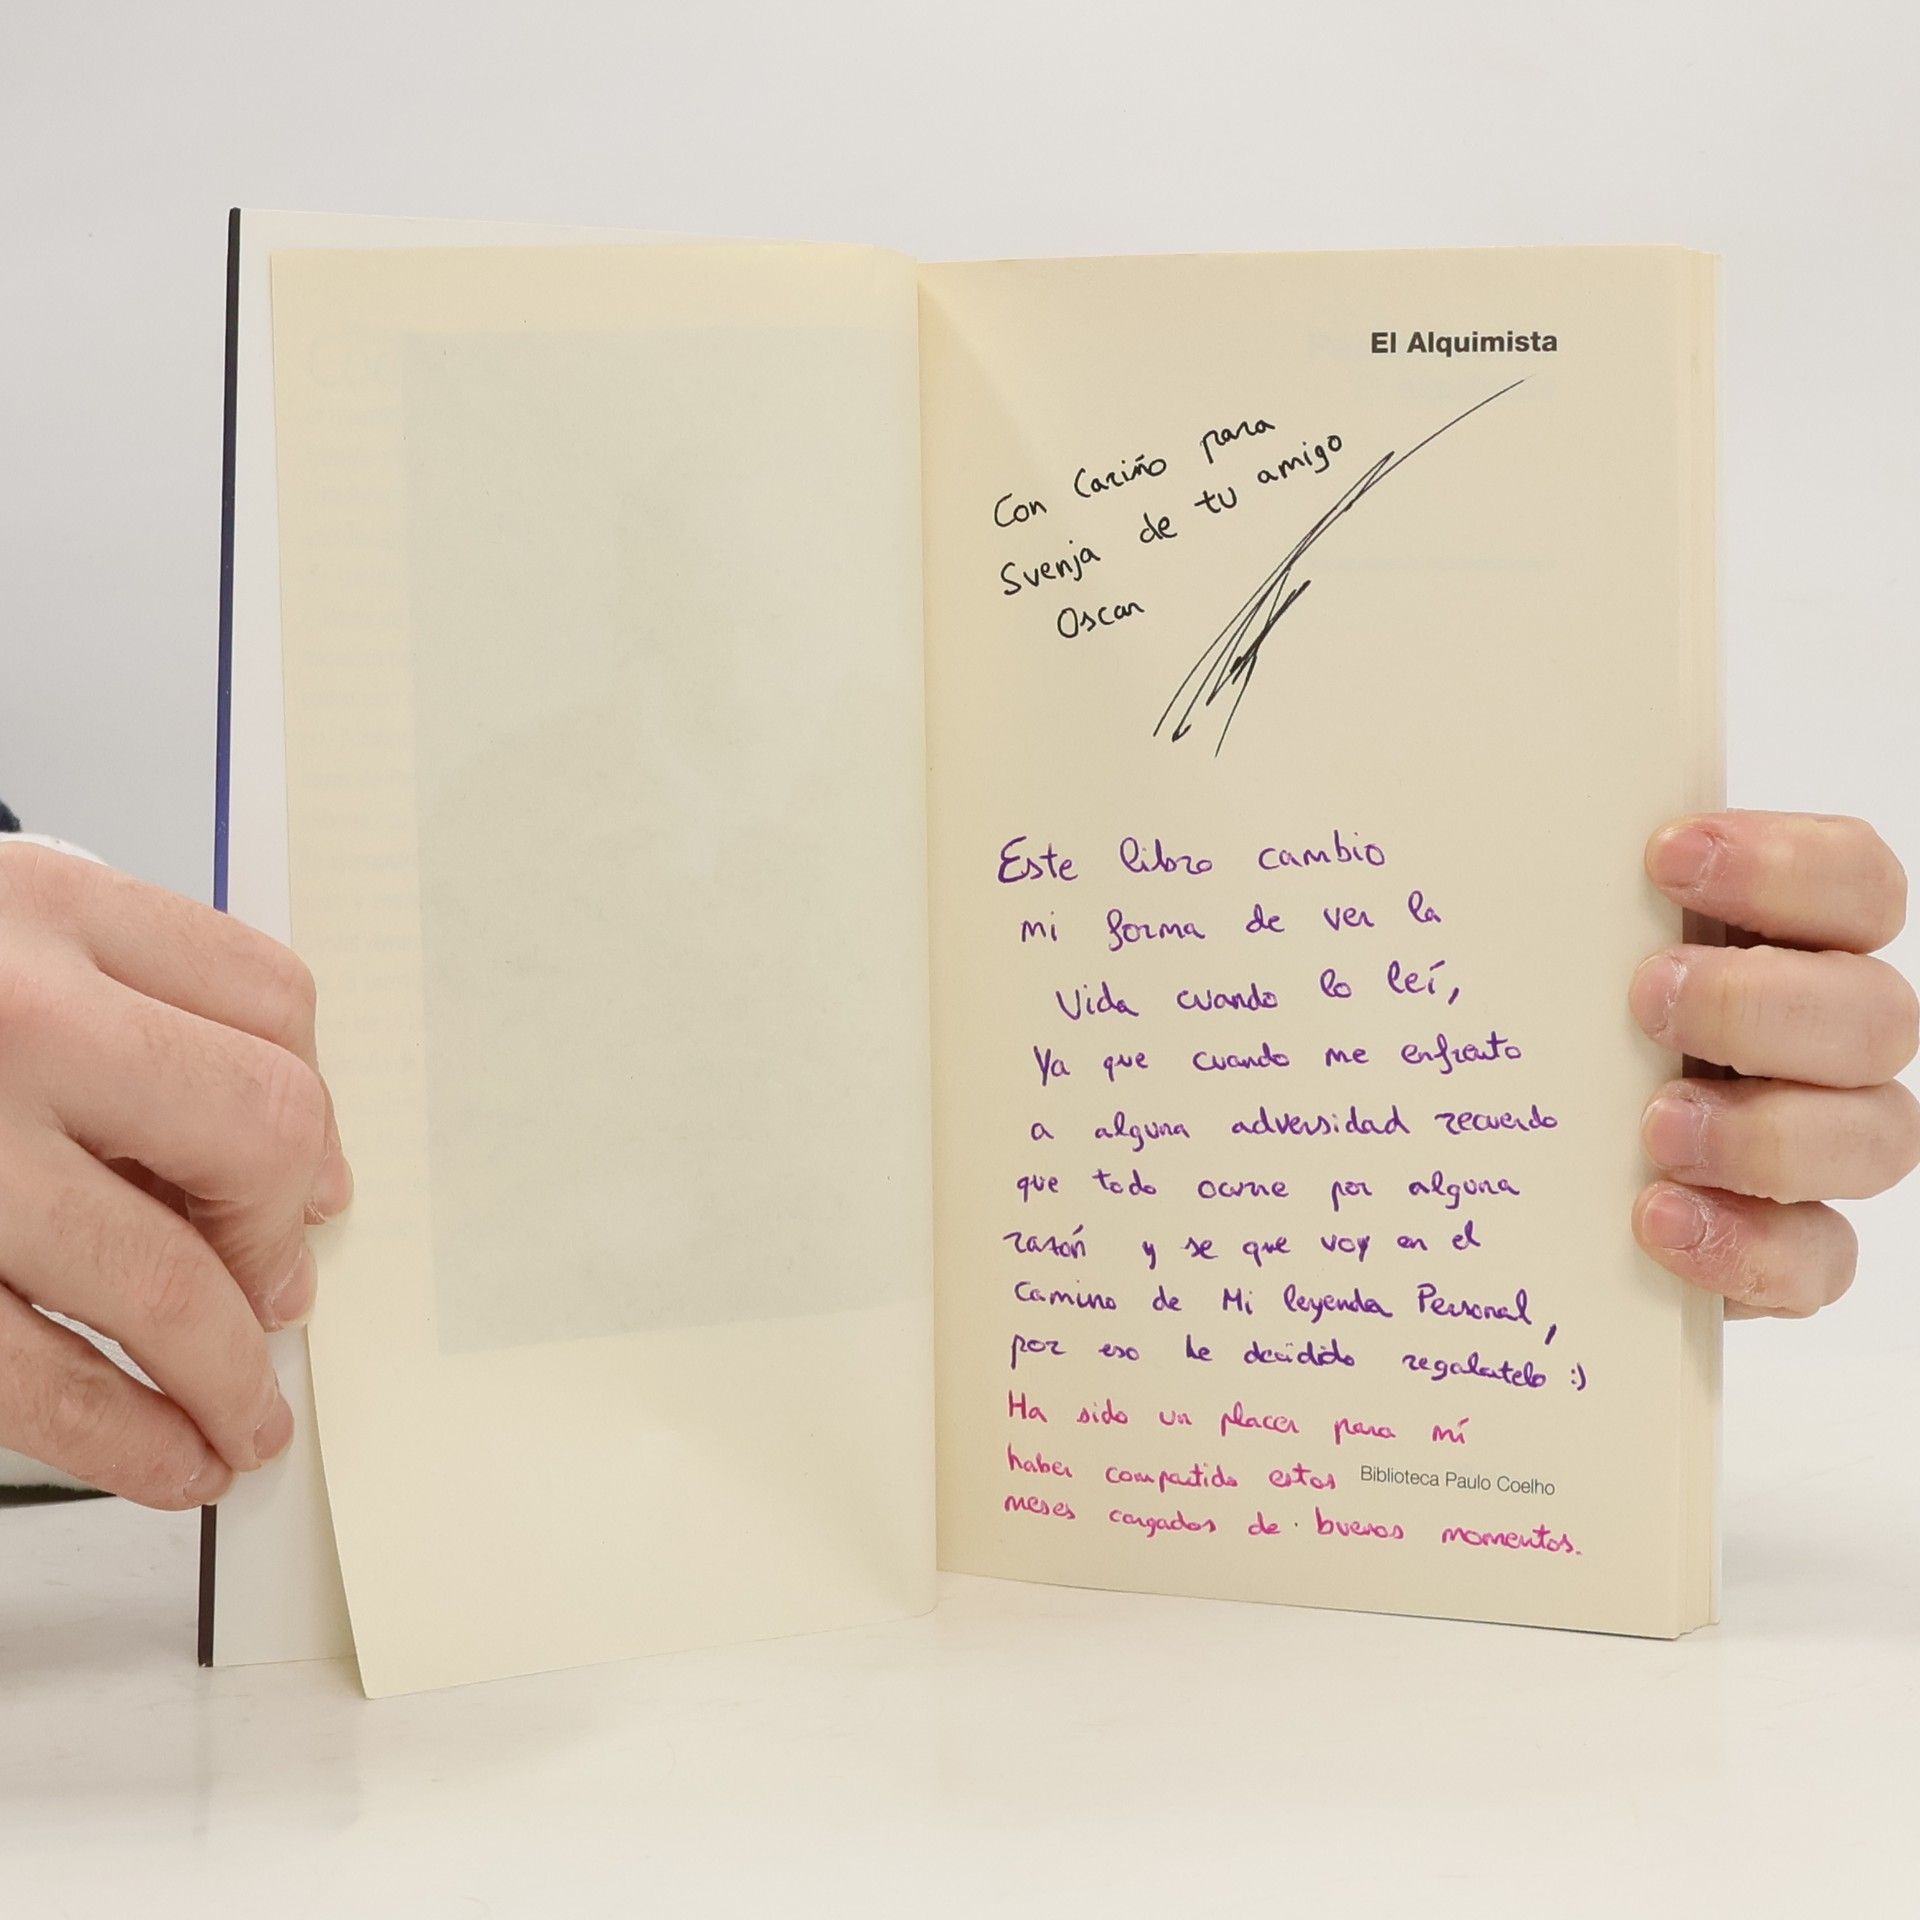 El Alquimista
Con Cariño para
Svenja de tu amigo
Oscar
Este libro cambio
mi forma de ver la
Vida cuando lo leí,
Ya que cuando me enfrento
a alguna adversidad recuerdo
que todo ocurre por alguna
razón y se que voy en el
Camino de Mi leyenda Personal,
por eso he decidido regalartelo :)
Ha sido un placer para mí
haber compartido estos
Biblioteca Paulo Coelho
meses cargados de buenos momentos.